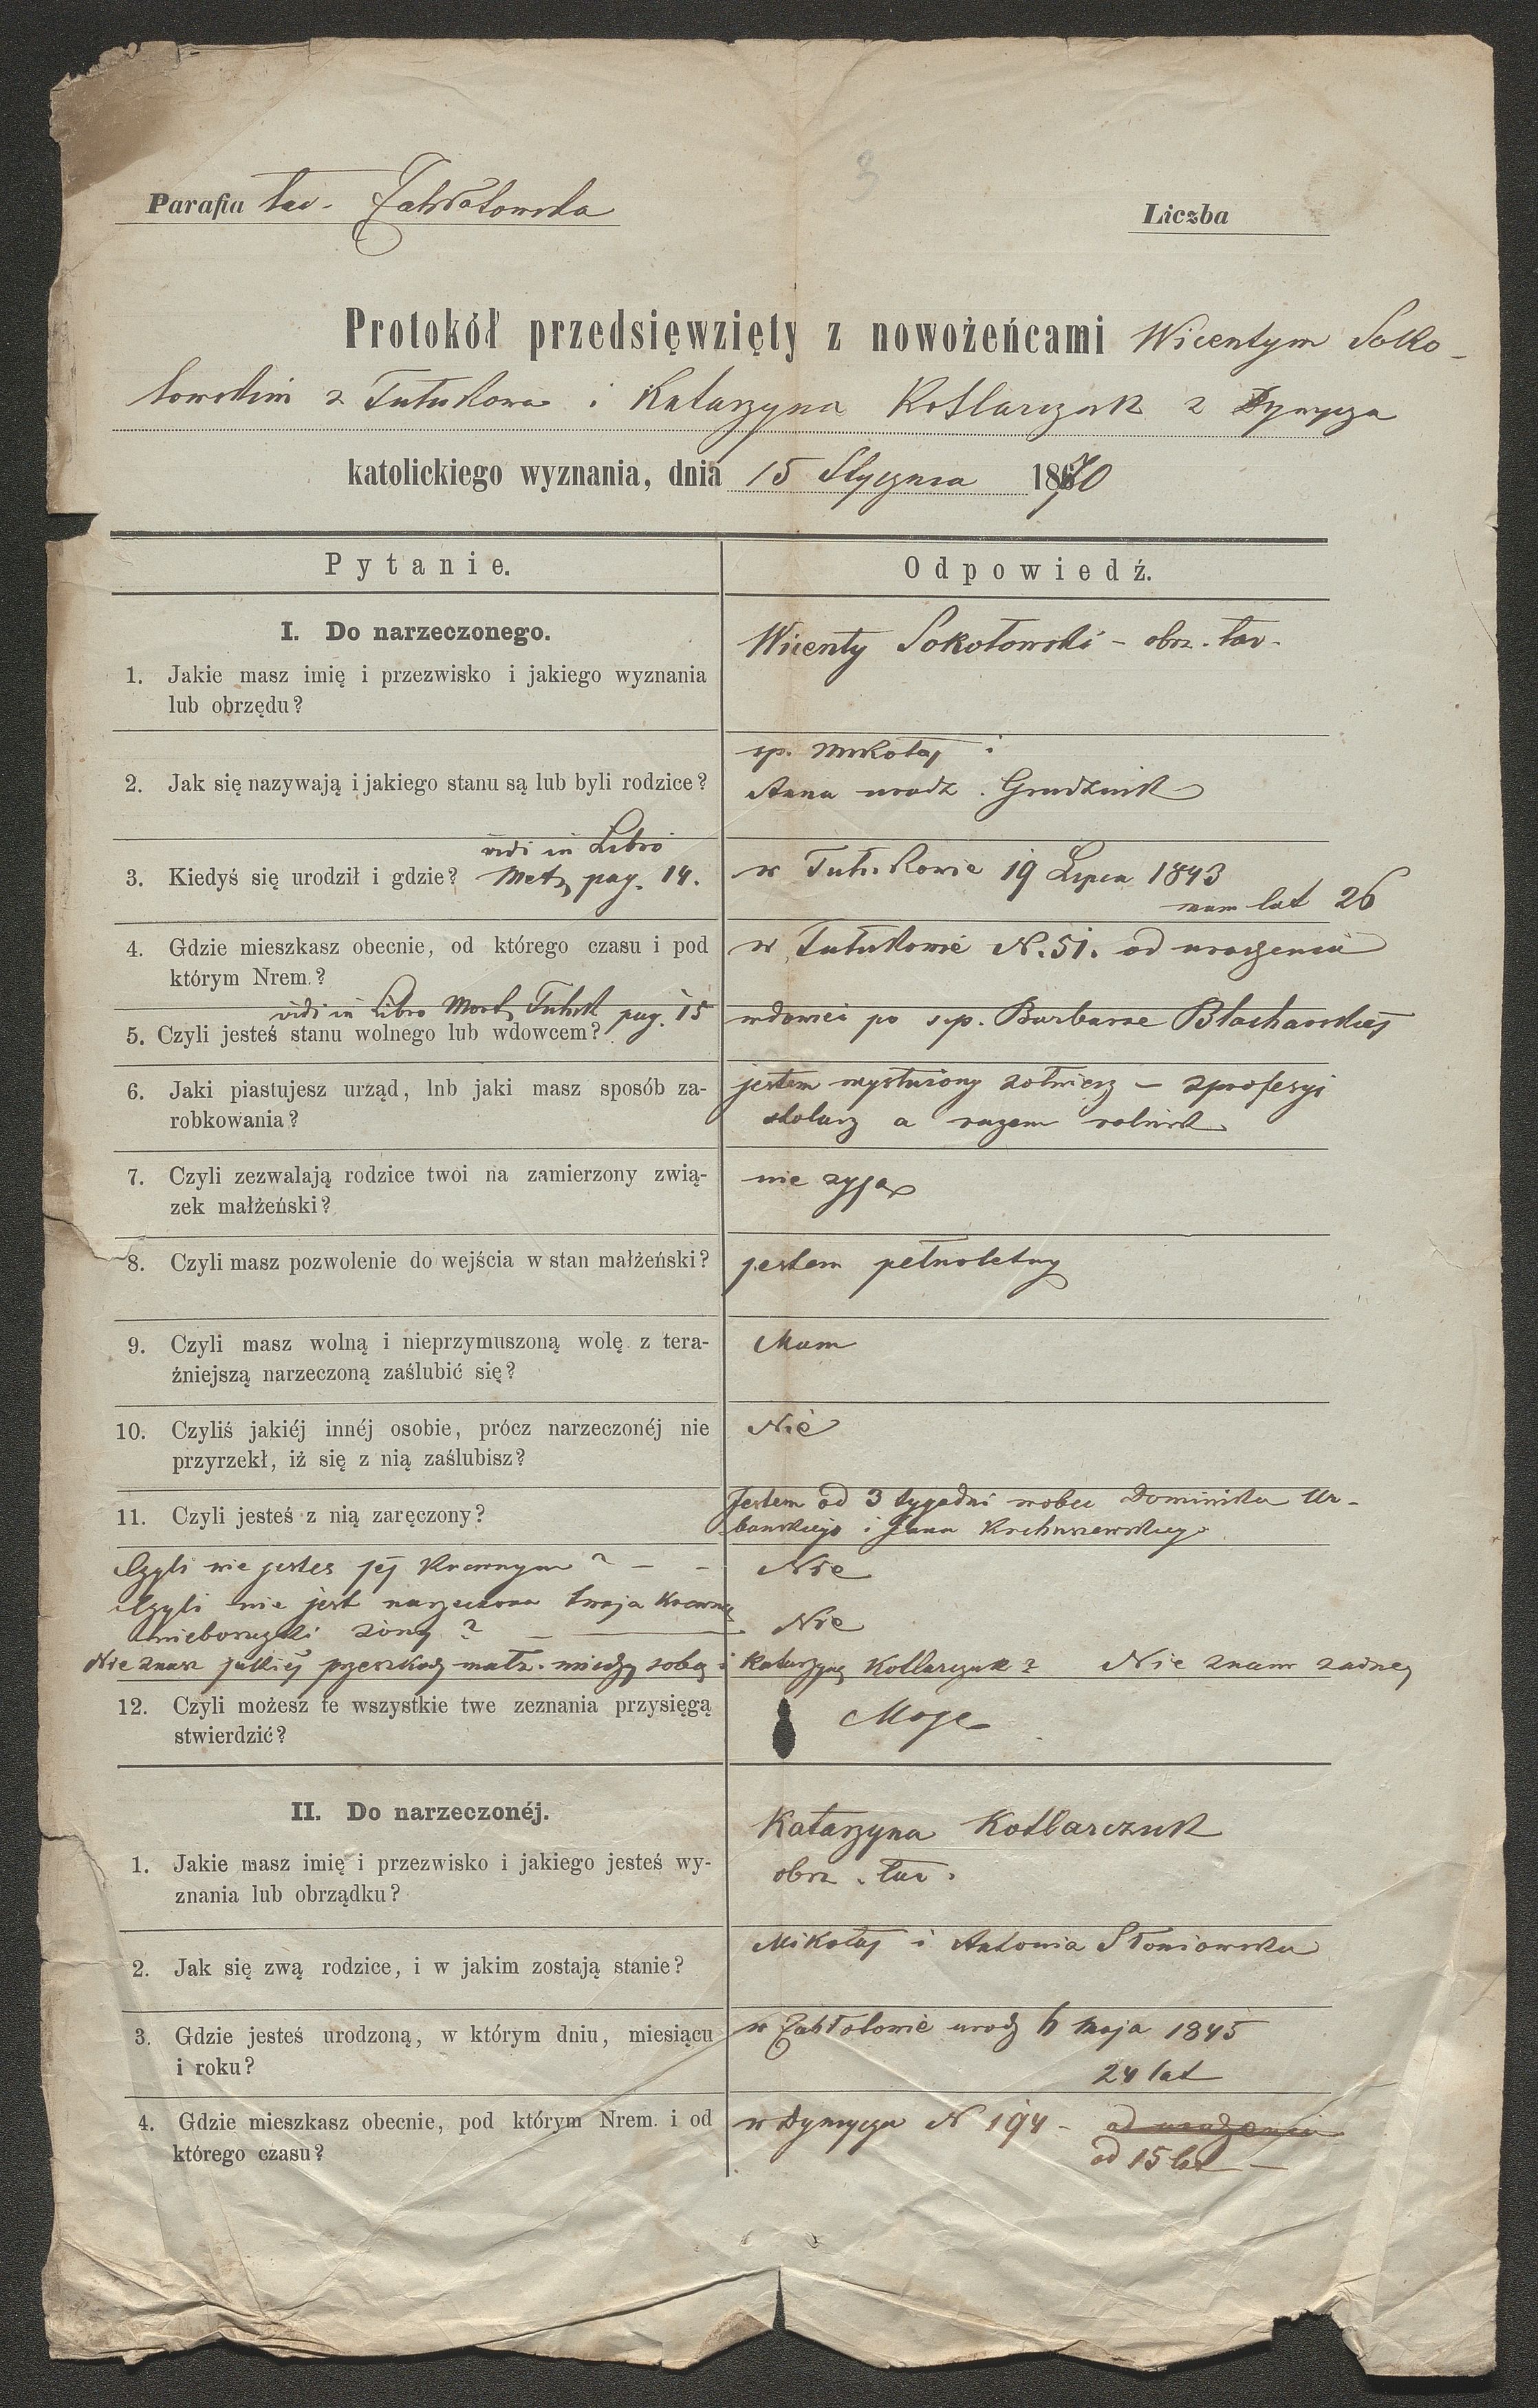 3
Parafia łac. Zabłotowska
Liczba
Protokół przedsięwzięty z nowożeńcami Wicentym Soko-
łowskim z Tułukowa i Katarzyna Kotlarczuk z Dymycza
katolickiego wyznania, dnia 15 Stycznia 1870
Pytanie. Odpowiedź.
I. Do narzeczonego.
1. Jakie masz imię i przezwisko i jakiego wyznania
lub obrzędu?
Wicenty Sokołowski - obrz. łac.
2. Jak się nazywają i jakiego stanu są lub byli rodzice?
sp. Mikołaj i
Anna urodz. Grudznik
vidi in Libro
3. Kiedyś się urodził i gdzie? Metr. pag. 14.
w Tułukowie 19 Lipca 1843
mam lat 26
4. Gdzie mieszkasz obecnie, od którego czasu i pod
którym Nrem.?
w Tułukowie N. 51. od urodzenia
vidi in Libro Mort. Tułuk pag. 15
5. Czyli jesteś stanu wolnego lub wdowcem?
wdowiec po s.p. Barbarze Błachowskiej
6. Jaki piastujesz urząd, lnb jaki masz sposób za-
robkowania?
jestem wysłużony zołnierz — z profesyi
stolarz a razem rolnik
7. Czyli zezwalają rodzice twoi na zamierzony zwią-
zek małżeński?
nie zyja
8. Czyli masz pozwolenie do wejścia w stan małżeński?
jestem pełnoletny
9. Czyli masz wolną i nieprzymuszoną wolę z tera-
źniejszą narzeczoną zaślubić się?
Mam
10. Czyliś jakiéj innéj osobie, prócz narzeczonéj nie
przyrzekł, iż się z nią zaślubisz?
Nie
11. Czyli jesteś z nią zaręczony?
Jestem od 3 tygodni wobec Dominika Ur-
bańskiego i Jana
Czyli nie jestes jej krewnym? — —
Nie
Czyli nie jest narzeczona twoja krewną
nieboszczki zóny? —
Nie
Nie znasz jakiej przeszkody małz. miedzy sobą i Katarzyną Kotlarczuk? Nie znam zadnej
12. Czyli możesz te wszystkie twe zeznania przysięgą
stwierdzić?
Moge
II. Do narzeczonéj.
1. Jakie masz imię i przezwisko i jakiego jesteś wy-
znania lub obrządku?
Katarzyna Kotlarczuk
obrz. łac.
2. Jak się zwą rodzice, i w jakim zostają stanie?
Mikołaj i Antonia Słoniowska
3. Gdzie jesteś urodzoną, w którym dniu, miesiącu
i roku?
w Zabłotowie urodz 6 maja 1845
24 lat
4. Gdzie mieszkasz obecnie, pod którym Nrem. i od
którego czasu?
w Dymyczu N 194 — od urodzenia
od 15 lat —